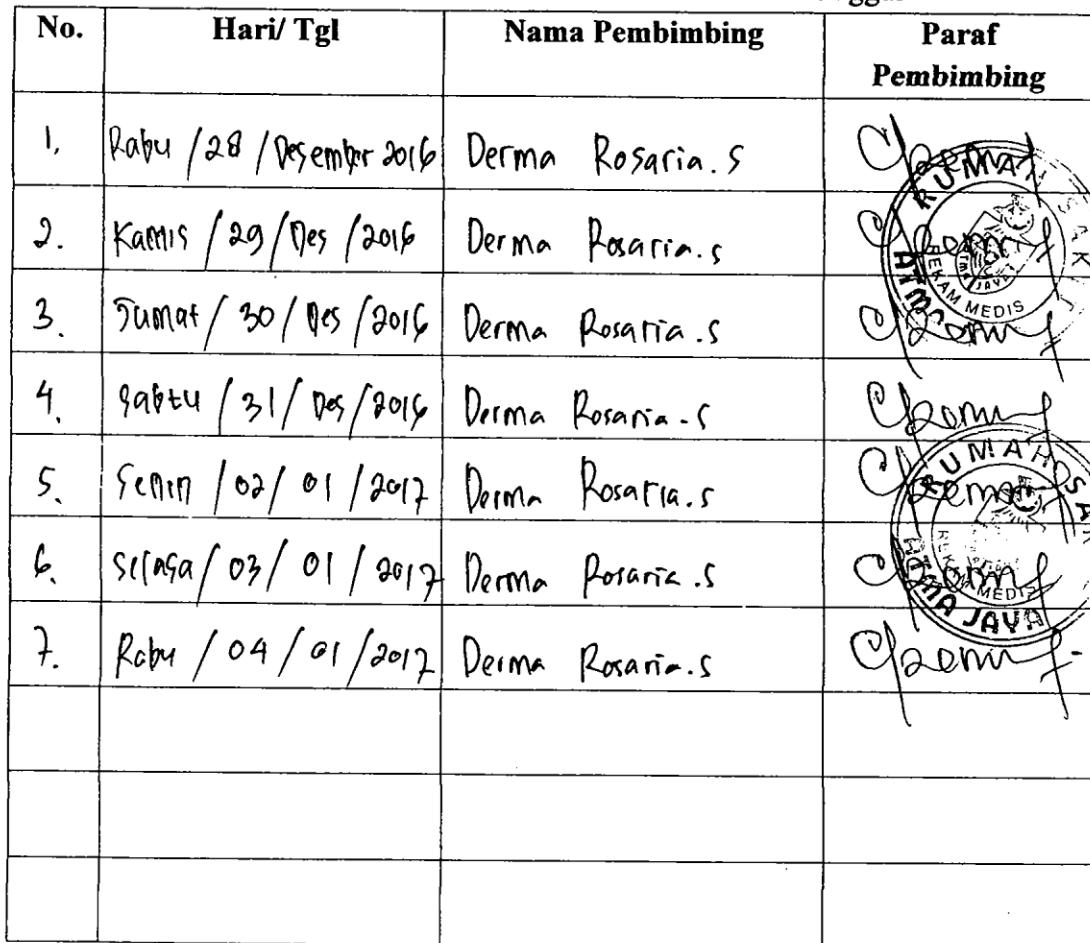 No. Hari/ Tgl Nama Pembimbing Paraf
Pembimbing
1. Rabu /28 /Desember 2016 Derma Rosaria.S
2. Kamis /29/Des /2016 Derma Rosaria.s
3. Jumat / 30/ Des /2016 Derma Rosaria.s
4. Sabtu /31/ Des/2016 Derma Rosaria.s
5. Senin /02/ 01 /2017 Derma Rosaria.s
6. Selasa/ 03/ 01 /2017 Derma Rosaria.s
7. Rabu / 04 / 01 /2017 Derma Rosaria.s
RUMAH SAKIT
ATMA
REKAM MEDIS
RUMAH SAK
REKAM MEDIS
ATMA JAYA